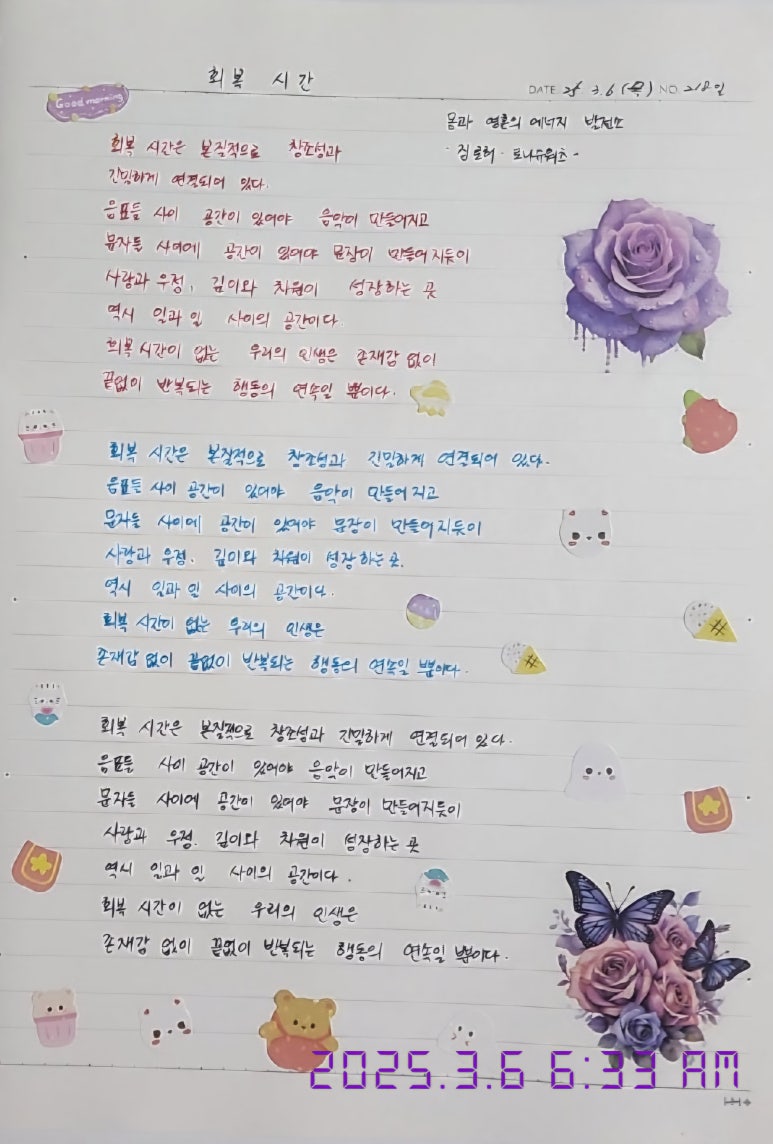 회복 시간
Good morning
DATE 25 3.6 (목) NO. 218일
몸과 영혼의 에너지 발전소
- 짐로허 · 토니슈워츠 -
회복 시간은 본질적으로 창조성과
긴밀하게 연결되어 있다.
음표들 사이 공간이 있어야 음악이 만들어지고
문자들 사이에 공간이 있어야 문장이 만들어지듯이
사랑과 우정, 깊이와 차원이 성장하는 곳
역시 일과 일 사이의 공간이다.
회복 시간이 없는 우리의 인생은 존재감 없이
끝없이 반복되는 행동의 연속일 뿐이다.
회복 시간은 본질적으로 창조성과 긴밀하게 연결되어 있다.
음표들 사이 공간이 있어야 음악이 만들어지고
문자들 사이에 공간이 있어야 문장이 만들어지듯이
사랑과 우정. 깊이와 차원이 성장하는 곳.
역시 일과 일 사이의 공간이다.
회복 시간이 없는 우리의 인생은
존재감 없이 끝없이 반복되는 행동의 연속일 뿐이다.
회복 시간은 본질적으로 창조성과 긴밀하게 연결되어 있다.
음표들 사이 공간이 있어야 음악이 만들어지고
문자들 사이에 공간이 있어야 문장이 만들어지듯이
사랑과 우정. 깊이와 차원이 성장하는 곳
역시 일과 일 사이의 공간이다.
회복 시간이 없는 우리의 인생은
존재감 없이 끝없이 반복되는 행동의 연속일 뿐이다.
2025.3.6 6:39 AM